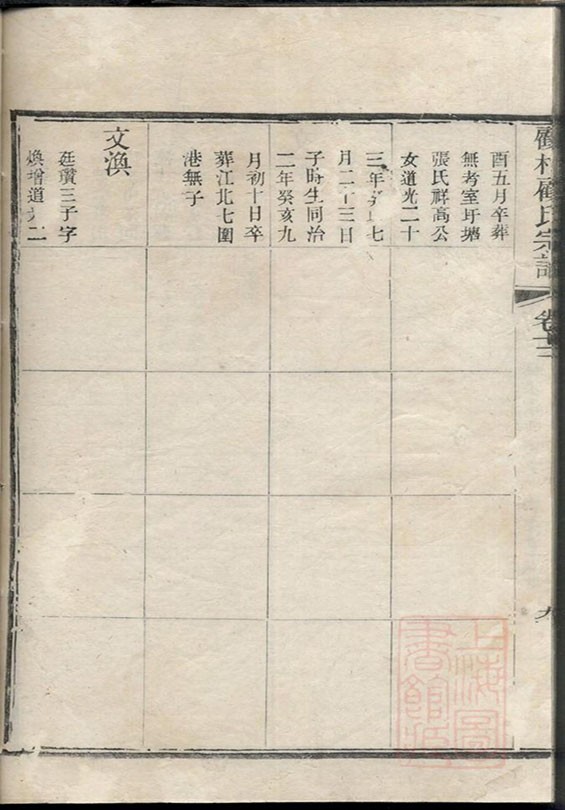 顧村顧氏宗譜
卷十三
九
酉五月卒葬
無考室圩塘
張氏祥高公
女道光二十
三年癸卯七
月二十三日
子時生同治
二年癸亥九
月初十日卒
葬江北七圍
港無子
文渙
廷瓚三子字
煥增道光二
上海圖書館藏